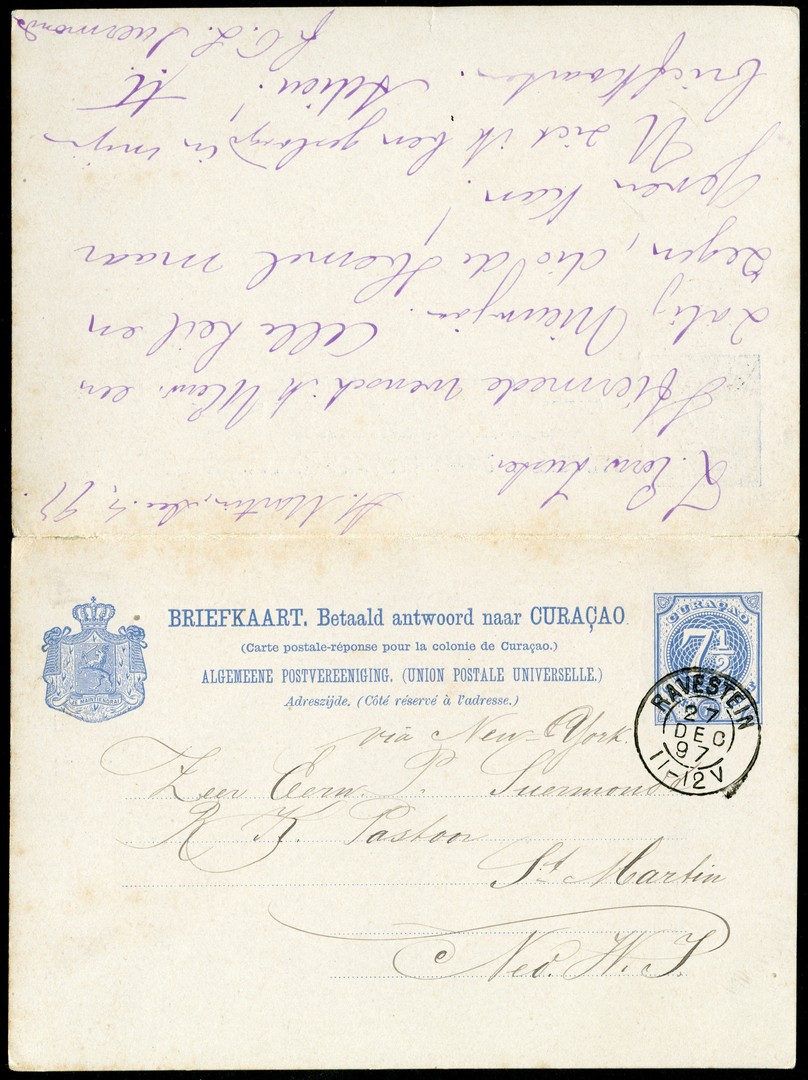 St. Martin, Dec. 5, 97
Z. Eerw. Zuster.
Hiermede wensch ik UEerw. een
Zalig Nieuwjaar. Alle heil en
Zegen, die de Hemel maar
geven kan!
U ziet ik ben gestoopt in mijn
briefkaarten. Adieu! tt.
P. C. L. Suermondt
BRIEFKAART. Betaald antwoord naar CURAÇAO
(Carte postale-réponse pour la colonie de Curaçao.)
ALGEMEENE POSTVEREENIGING. (UNION POSTALE UNIVERSELLE.)
Adreszijde. (Côté réservé à l'adresse.)
JE MAINTIENDRAI
CURAÇAO
7 1/2
RAVESTEIN
27
DEC
97
11-12V
via New-York.
Zeer Eerw. P. Suermondt
R. K. Pastoor
St. Martin
Ned. W. I.